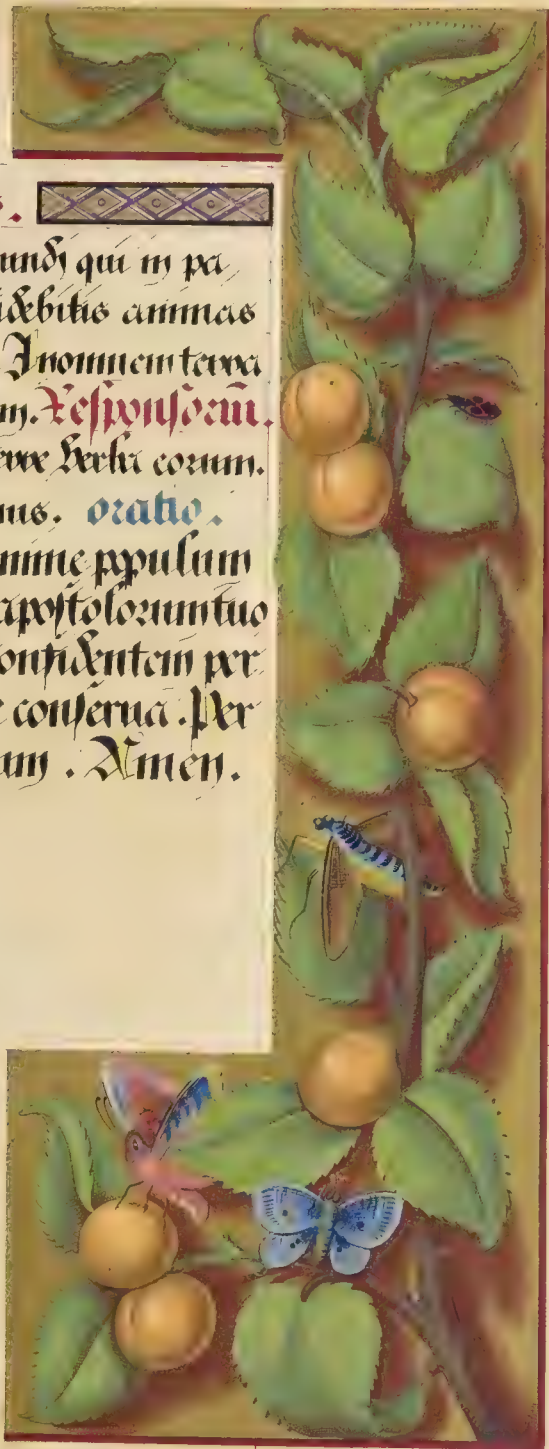 s.
undi qui in pa
idebitis animas
In omnem terra
m. Responsoriu.
erre verba eorum.
mus. oratio.
omine populum
apostolorum tuo
onfidentem per
e conserua. Per
um. Amen.